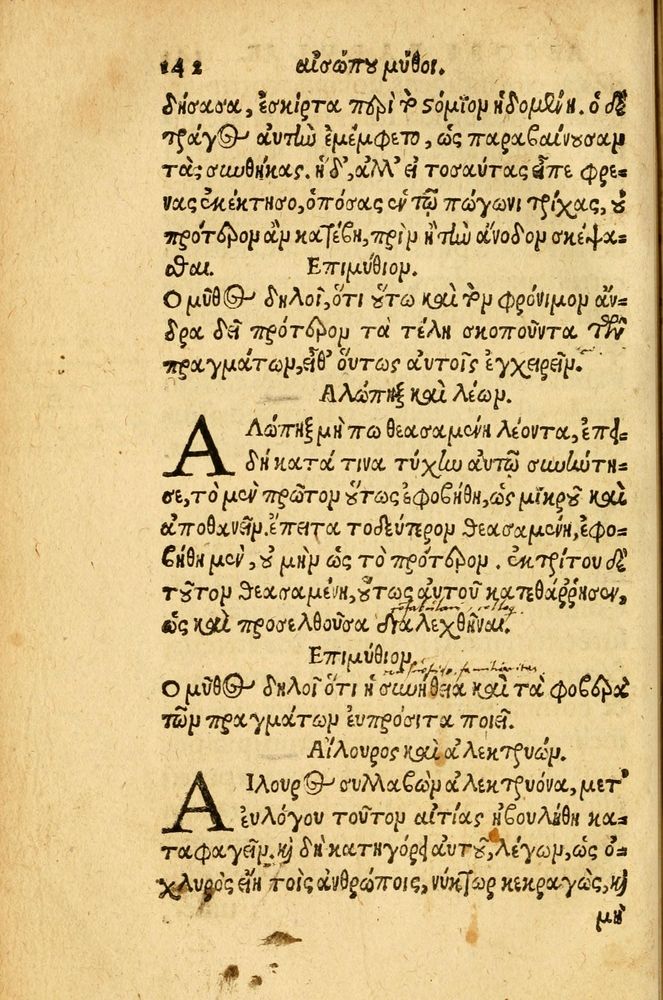 142 αἰσώπου μῦθοι.
δήσασα, ἐσκίρτα περὶ τὸ στόμιον ἡδομένη. ὁ δὲ
τράγος αὐτὴν ἐμέμφετο, ὡς παραβαίνουσαν
τὰς συνθήκας. ἡ δ', ἀλλ' εἰ τοσαύτας εἶπε φρέ=
νας ἐκέκτησο, ὁπόσας ἐν τῷ πώγωνι τρίχας, οὐ
πρότερον ἂν κατέβης, πρὶν ἢ τὴν ἄνοδον σκέψα=
σθαι. Ἐπιμύθιον.
Ο μῦθος δηλοῖ, ὅτι οὕτω καὶ τὸν φρόνιμον ἄν=
δρα δεῖ πρότερον τὰ τέλη σκοποῦντα τῶν
πραγμάτων, εἶθ' οὕτως αὐτοῖς ἐγχειρεῖν.
Αλώπηξ καὶ λέων.
ΑΛώπηξ μήπω θεασαμένη λέοντα, ἐπει=
δὴ κατά τινα τύχην αὐτῷ συνήντη=
σε, τὸ μὲν πρῶτον οὕτως ἐφοβήθη, ὡς μικροῦ καὶ
ἀποθανεῖν. ἔπειτα τὸ δεύτερον θεασαμένη, ἐφο=
βήθη μὲν, οὐ μὴν ὡς τὸ πρότερον. ἐκ τρίτου δὲ
τοῦτον θεασαμένη, οὕτως αὐτοῦ κατεθάῤῥησεν,
ὡς καὶ προσελθοῦσα διαλεχθῆναι.
Ἐπιμύθιον.
Ο μῦθος δηλοῖ ὅτι ἡ συνήθεια καὶ τὰ φοβερὰ
τῶν πραγμάτων εὐπρόσιτα ποιεῖ.
Αἴλουρος καὶ ἀλεκτρυών.
ΑΙλουρος συλλαβὼν ἀλεκτρυόνα, μετ'
εὐλόγου τοῦτον αἰτίας ἠβουλήθη κα=
ταφαγεῖν. καὶ δὴ κατηγόρει αὐτοῦ, λέγων, ὡς ὀ=
χληρὸς εἴη τοῖς ἀνθρώποις, νύκτωρ κεκραγὼς, καὶ
μὴ